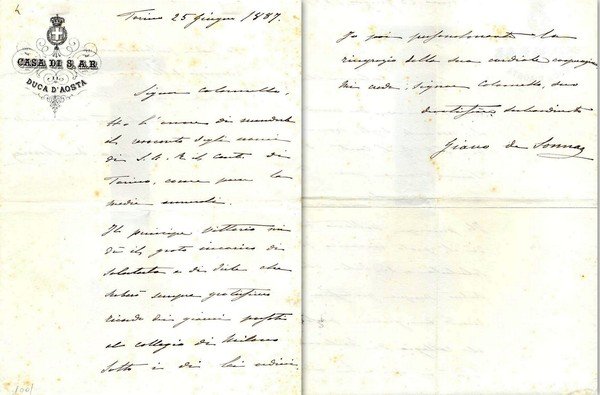 CASA DI S.A.R.
IL
DUCA D'AOSTA
Torino 25 giugno 1887.
Signor colonnello
Ho l'onore di mandarle
il resoconto degli esami
di S.A.R. il Conte di
Torino, come pure la
media annuale.
Il principe Vittorio mi
dà il grato incarico di
salutarla e di dirle che
serberà sempre gratissimo
ricordo dei giorni passati
al collegio di Milano
sotto i di lei ordini.
Io poi personalmente la
ringrazio della sua cordiale
mi creda signor Colonnello, suo
subordinato
de Sonnaz
1001